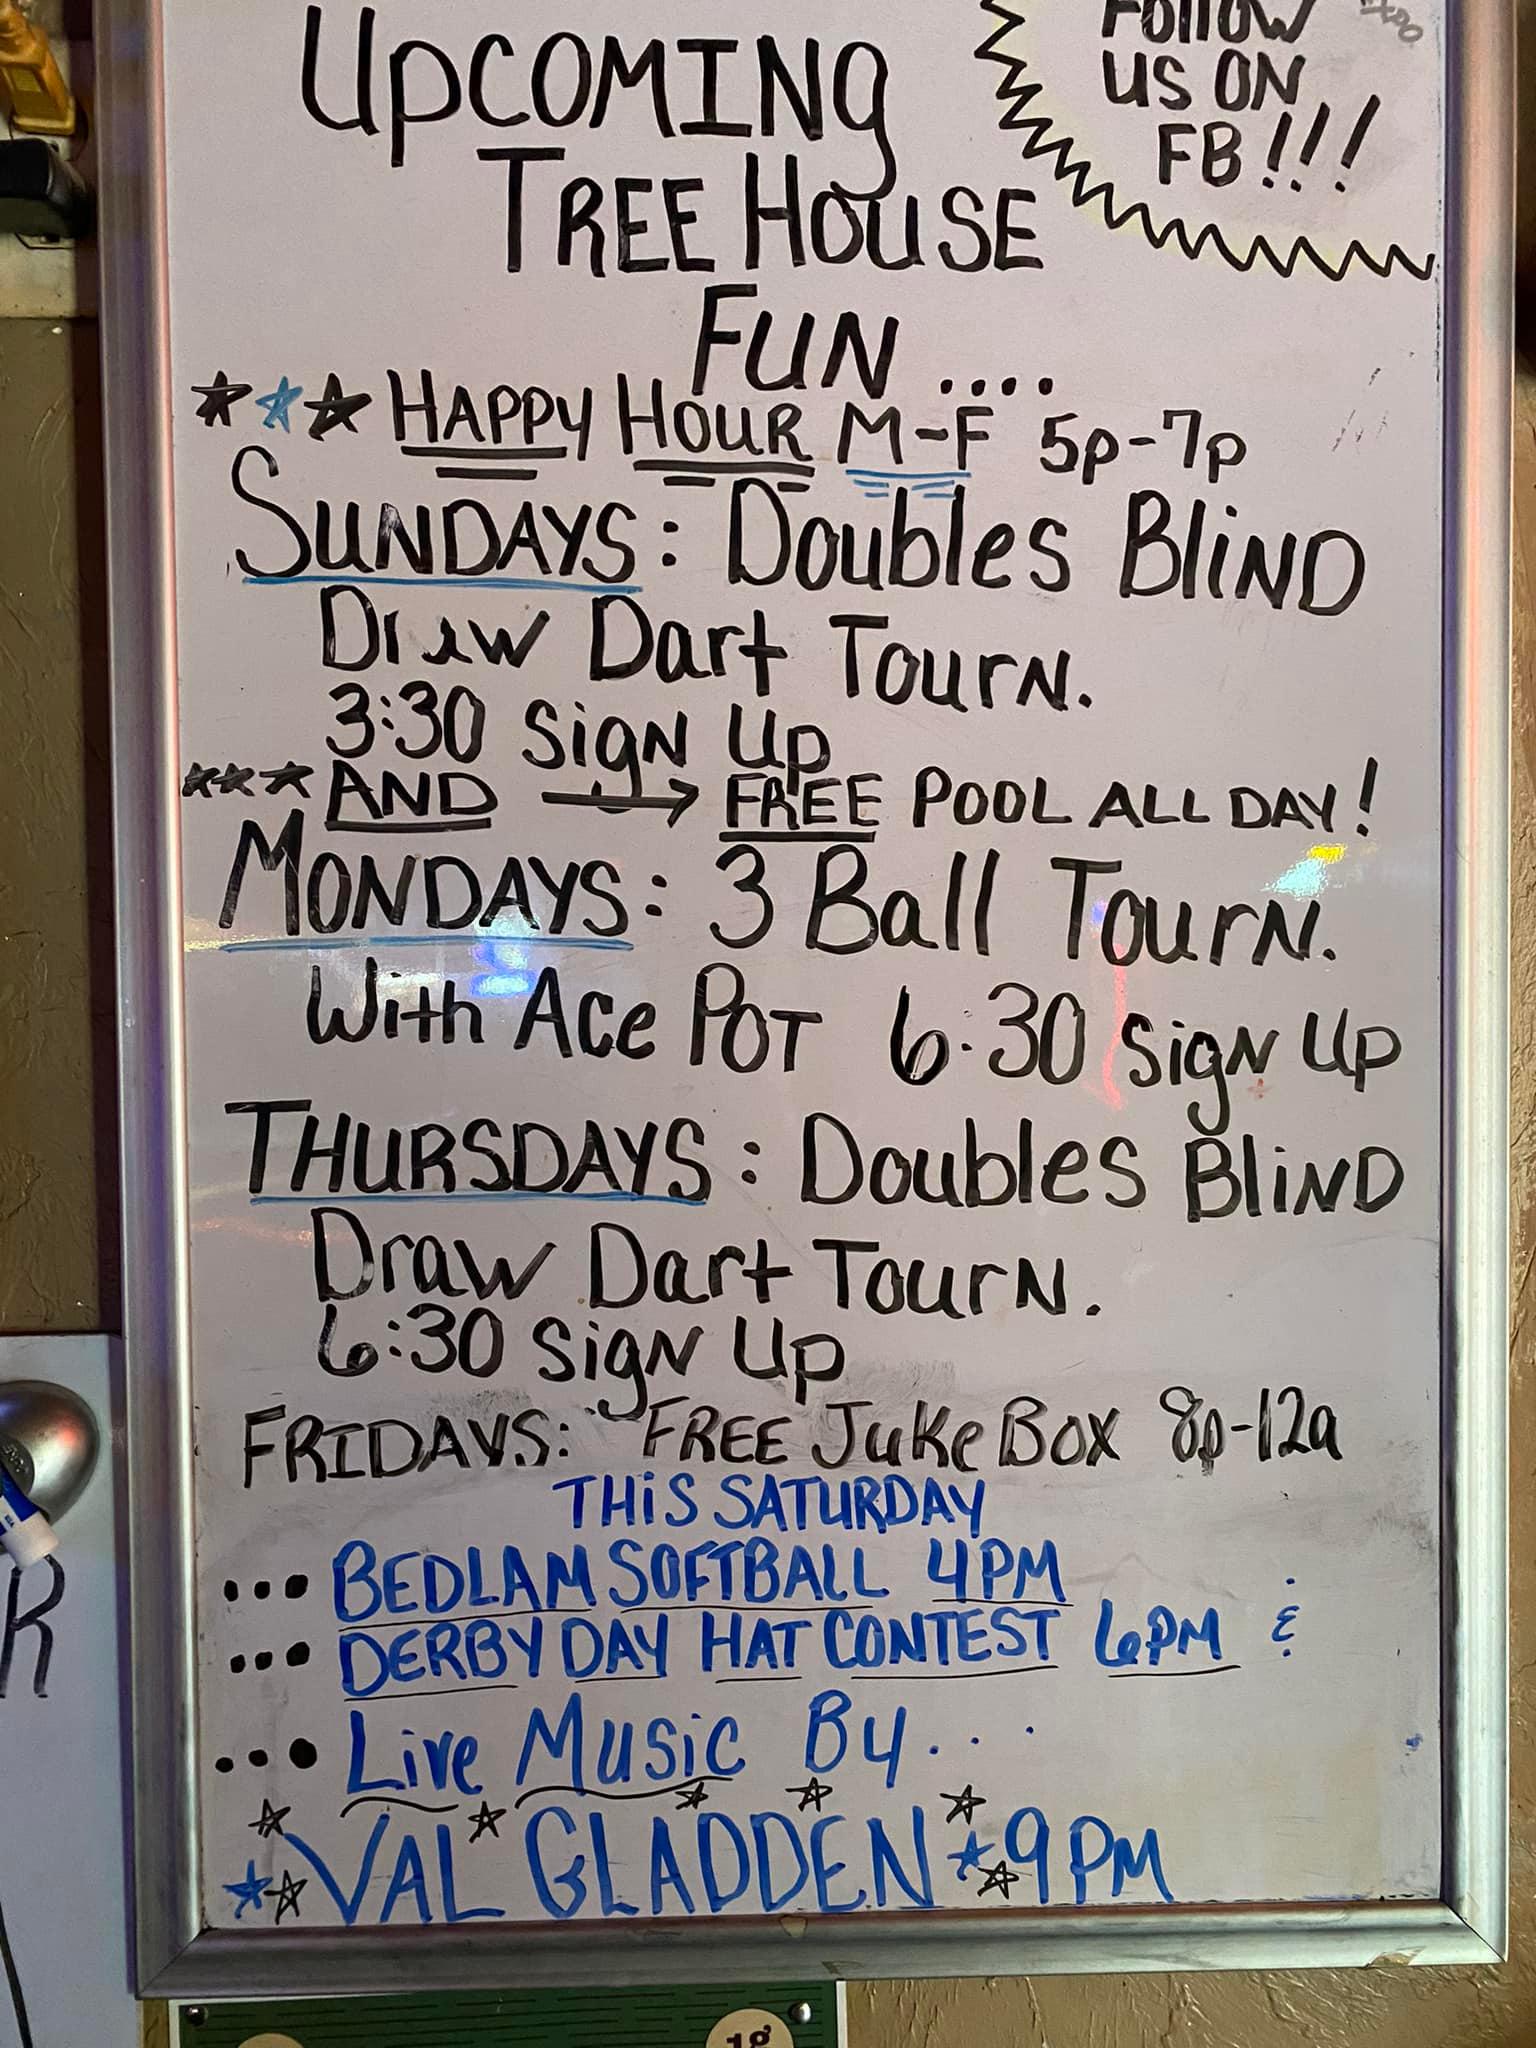 UPCOMING
TREE HOUSE
FUN ....
FOLLOW
US ON
FB!!!
HAPPY HOUR M-F 5p-7p
SUNDAYS: Doubles BliND
Draw Dart TourN.
3:30 SigN Up
AND → FREE POOL ALL DAY!
MONDAYS: 3 Ball TourN.
With Ace POT 6:30 SigN Up
THURSDAYS: Doubles BliND
Draw Dart TourN.
6:30 SigN Up
FRIDAYS: FREE JukeBox 8p-12a
THiS SATURDAY
... BEDLAM SOFTBALL 4PM
... DERBY DAY HAT CONTEST 6PM &
... Live Music By...
VAL GLADDEN 9PM
R